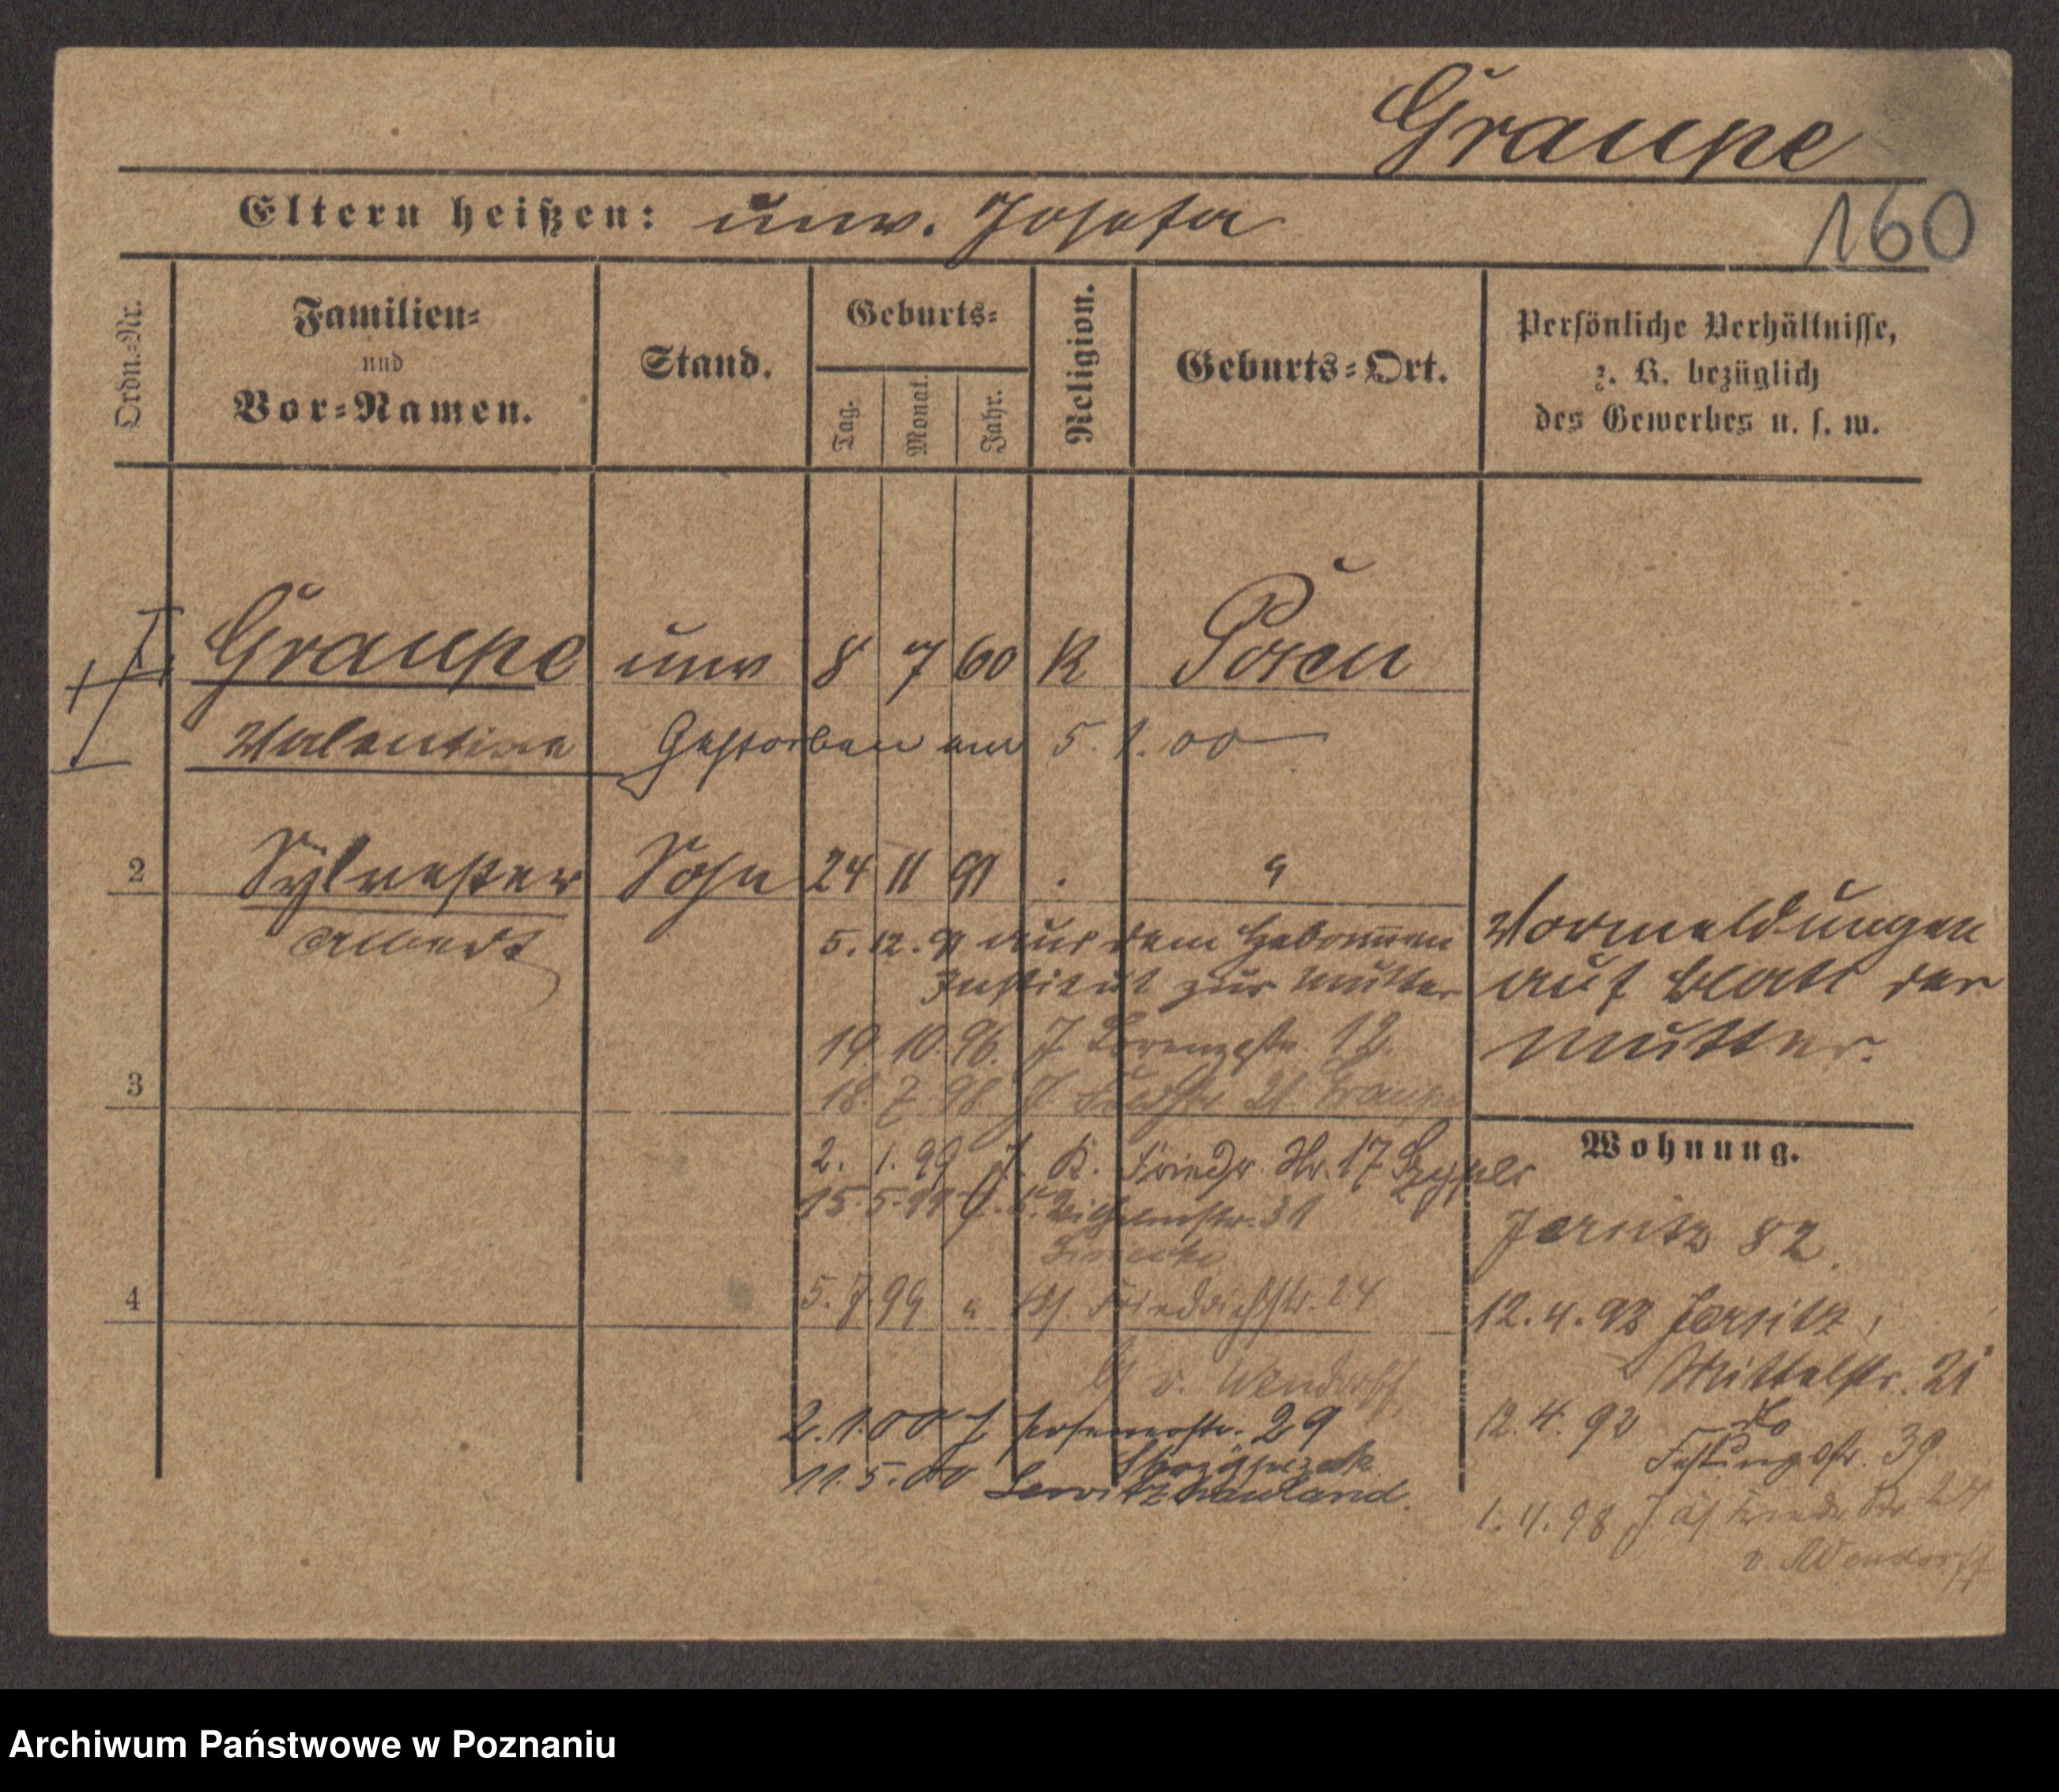 Graupe
160
Eltern heißen: unv. Josefa
Ordn.-Nr.
Familien-
und
Vor-Namen.
Stand.
Geburts-
Tag.
Monat.
Jahr.
Religion.
Geburts-Ort.
Persönliche Verhältnisse,
z. B. bezüglich
des Gewerbes u. s. w.
Graupe unv 8 7 60 K Posen
Valentine Gestorben am 5. 1. 00
2 Sylvester Sohn 24 11 91 "
Albert
5. 12. 91 aus dem Hebammen
Institut zur Mutter
Vormeldungen
auf Blatt der
Mutter.
19. 10. 96. J. Lorenzstr. 12.
3
18. 7. 98 J. 21 Graupe
2. 1. 99 J. K. Friedr. Str. 17
15. 5. 99 J. K. Wilhelmstr. 31
Wohnung.
Jersitz 82.
4
5. 7. 99 " Friedrichstr. 24
v. Wendorff
12. 4. 92 Jersitz,
Mittelstr. 21
2. 1. 00 J 29
12. 4. 92 do
Festungsstr. 39
11. 5. 00
1. 4. 98 J. Friedr. Str 24
v. Wendorff
Archiwum Państwowe w Poznaniu